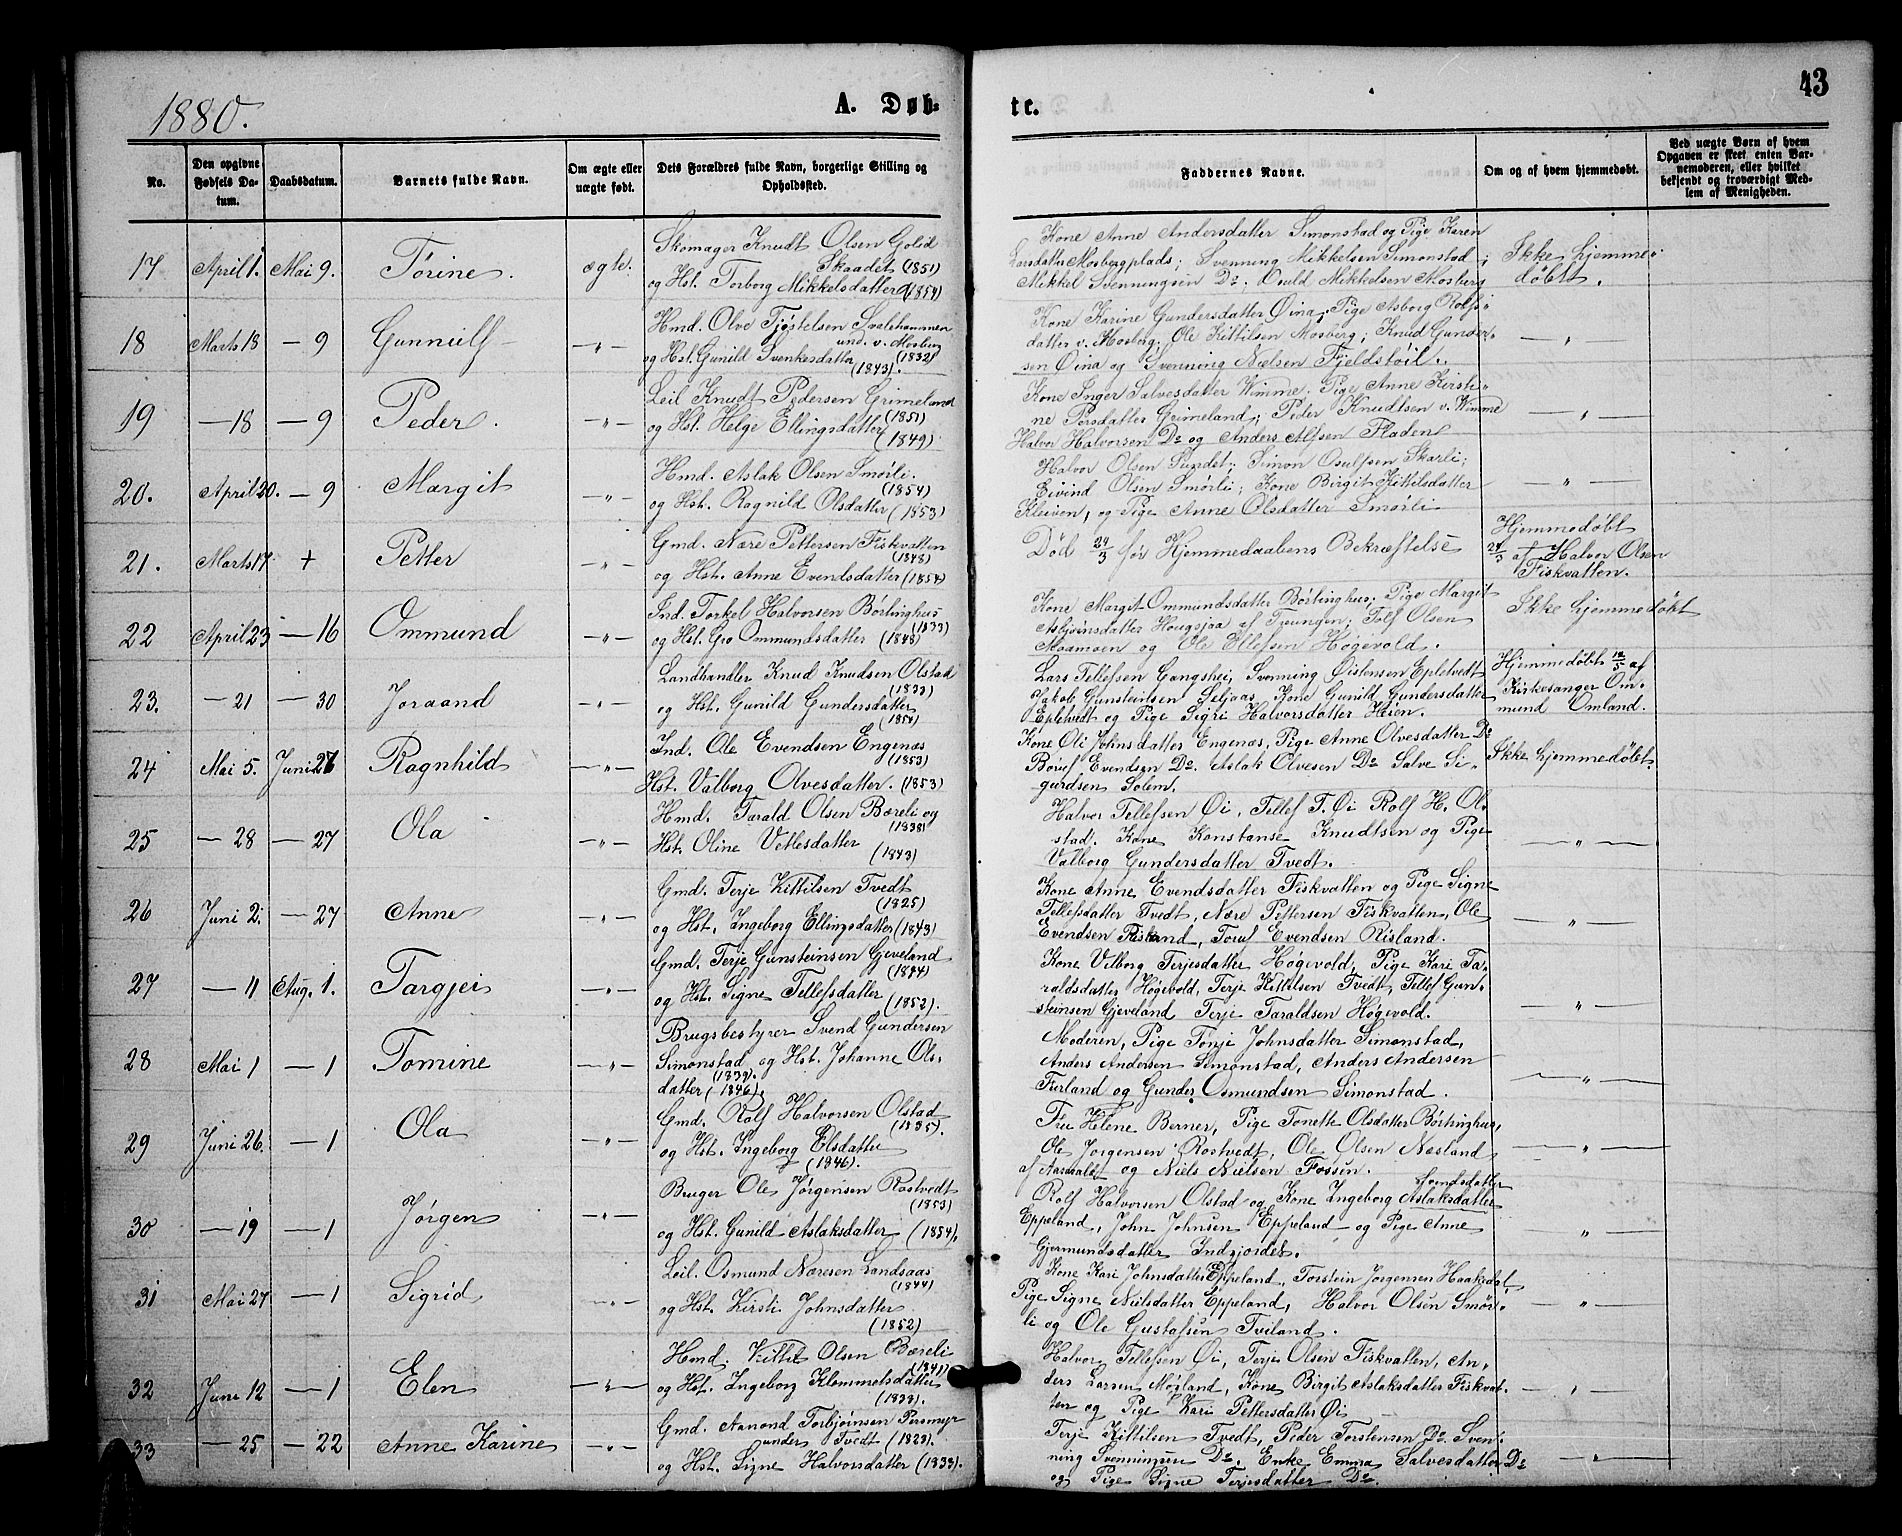 1880.
A. Døb-
te.
43
No.
Den opgivne Fødsels Datum.
Daabsdatum.
Barnets fulde Navn.
Om ægte eller uægte født.
Dets Forældres fulde Navn, borgerlige Stilling og Opholdssted.
Faddernes Navne.
Om og af hvem hjemmedøbt.
Ved uægte Børn af hvem Opgaven er skeet enten Barnemoderen, eller hvilket bekjendt og troværdigt Medlem af Menigheden.
17 April 1. Mai 9. Torine. ægte.
Skomager Knudt Olsen Golid
Skaadet (1851)
og Hst. Torborg Mikkelsdatter (1854)
Kone Anne Andersdatter Simonstad og Pige Karen
Larsdatter Mosbergplads; Svenning Mikkelsen Simonstad;
Mikkel Svenningsen Do. Osuld Mikkelsen Mosberg
Ikke hjemme-
døbt.
18 Marts 18 — 9 Gunnulf — " —
Hmd. Olve Tjøstelsen Svalehommen
und. v. Mosberg
(1832)
og Hst. Gunild Svenkesdatter
(1843).
Kone Karine Gundersdatter Øina; Pige Asborg Rolfs-
datter v. Mosberg; Ole Kittilsen Mosberg; Knud Gunder-
sen Øina og Svenning Nielsen Fjeldstøil.
— " —
19 — 18 — 9 Peder. — " —
Leil Knudt Pedersen Grimeland
(1851)
og Hst. Helge Ellingsdatter
(1849)
Kone Inger Salvesdatter Wimme. Pige Anne Kirsti-
ne Persdatter Grimeland; Peder Knudtsen v. Wimme
Halvor Halvorsen Do og Anders Alfsen Fladen
— " —
20. April 20. — 9 Margit — " —
Hmd. Aslak Olsen Smørli.
(1854)
og Hst. Ragnild Olsdatter
(1853)
Halvor Olsen Sundet; Simon Osulfsen Skarli;
Eivind Olsen Smørli; Kone Birgit Kittilsdatter
Kleiven, og Pige Anne Olsdatter Smørli
— " —
21. Marts 17 + Petter — " —
Gmd. Nære Pettersen Fiskvatten
(1848)
og Hst. Anne Evendsdatter (1854)
Død 24/3 før Hjemmedaabens Bekræftelse
Hjemmedøbt
24/3 af Halvor Olsen
Fiskvatten.
22 April 23 — 16 Ommund — " —
Ind. Torkel Halvorsen Børtinghus
(1833)
og Hst. Gro Ommundsdatter (1848)
Kone Margit Ommundsdatter Børtinghus; Pige Margit
Asbjørnsdatter Hougsjaa af Treungen; Tolf Olsen
Moamoen og Ole Ellefsen Høgevold.
Ikke hjemmedøbt
23. — 21 — 30 Joraand — " —
Landhandler Knud Knudsen Olstad
(1833)
og Hst. Gunild Gundersdatter
(1854)
Lars Tellefsen Gangshei, Svenning Øistensen Epletvedt
Jakob Gunsteinsen Seljaas, Kone Gunild Gundersdatter
Epletvedt og Pige Sigri Halvorsdatter Heien.
Hjemmedøbt 12/5 af
Kirkesanger Om-
mund Omland.
24 Mai 5. Juni 27 Ragnhild — " —
Ind. Ole Evendsen Engenæs
(1853)
Hst. Valborg Olvesdatter. (1853)
Kone Øli Johnsdatter Engenæs, Pige Anne Olvesdatter Do
Boruf Evendsen Do. Aslak Olvesen Do Salve Si-
gurdsen Solem.
Ikke hjemmedøbt
25 — 28 — 27 Ola — " —
Hmd. Tarald Olsen Bæreli og
(1838)
Hst. Oline Vetlesdatter
(1843)
Halvor Tellefsen Øi, Tellef T. Øi Rolf H. Ol-
stad. Kone Konstanse Knudtsen og Pige
Valborg Gundersdatter Tvedt.
— " —
26 Juni 2. — 27 Anne — " —
Gmd. Terje Kittilsen Tvedt
(1825)
og Hst. Ingeborg Ellingsdatter (1843)
Kone Anne Evendsdatter Fiskvatten og Pige Signe
Tellefsdatter Tvedt, Nære Pettersen Fiskvatten, Ole
Evendsen Risland, Toruf Evendsen Risland.
— " —
27 — 11 Aug. 1. Targjei — " —
Gmd. Terje Gunsteinsen Gjeveland
(1844)
og Hst. Signe Tellefsdatter
(1852).
Kone Vilborg Terjesdatter Høgevold; Pige Kari Ta-
raldsdatter Høgevold, Terje Kittilsen Tvedt, Tellef Gun-
steinsen Gjeveland Terje Taraldsen Høgevold.
— " —
28 Mai 1 — 1 Tomine — " —
Brugsbestyrer Svend Gundersen
Simonstad og Hst. Johanne Ols-
(1839).
datter (1846).
Moderen, Pige Tonje Johnsdatter Simonstad,
Anders Andersen Simonstad, Anders Andersen
Furland og Gunder Osmundsen Simonstad.
— " —
29 Juni 26. — 1 Ola — " —
Gmd. Rolf Halvorsen Olstad
(1835).
og Hst. Ingeborg Olsdatter
(1846).
Fru Helene Berner, Pige Tonette Olsdatter Børtinghus,
Ole Jørgensen Rostvedt, Ole Olsen Næsland
og Niels Nielsen Fossen.
— " —
30 — 19 — 1 Jørgen — " —
Bruger Ole Jørgensen Rostvedt
(1853)
og Hst. Gunild Aslaksdatter (1854).
Svendsdatter
Rolf Halvorsen Olstad og Kone Ingeborg Aslaksdatter
Eppeland, John Johnsen Eppeland og Pige Anne
Gjermundsdatter Indgjordet.
— " —
31 Mai 27 — 1 Sigrid — " —
Leil. Osmund Næresen Landsaas
(1844)
og Hst. Kirsti Johnsdatter
(1852)
Kone Kari Johnsdatter Eppeland, Torstein Jørgensen Haaksdal,
Pige Signe Nielsdatter Eppeland, Halvor Olsen Smør-
li og Ole Gustafsen Tviland.
— " —
32 Juni 12 — 1 Elen — " —
Hmd. Kittil Olsen Bæreli
(1841)
og Hst. Ingeborg Klemmetsdatter
(1833).
Halvor Tellefsen Øi, Terje Olsen Fiskvatten, An-
ders Larsen Mosland, Kone Birgit Aslaksdatter Fiskvat-
ten og Pige Kari Pettersdatter Øi
— " —
33 — 25 — 22 Anne Karine — " —
Gmd. Aanond Torbjørnsen Persmyr
under Tvedt (1829).
og Hst. Signe Halvorsdatter (1833).
Terje Kittilsen Tvedt, Peder Torstensen Do. Sven-
ning Svenningsen Do. Enke Emma Salvesdatter Do
og Pige Signe Terjesdatter Do.
— " —